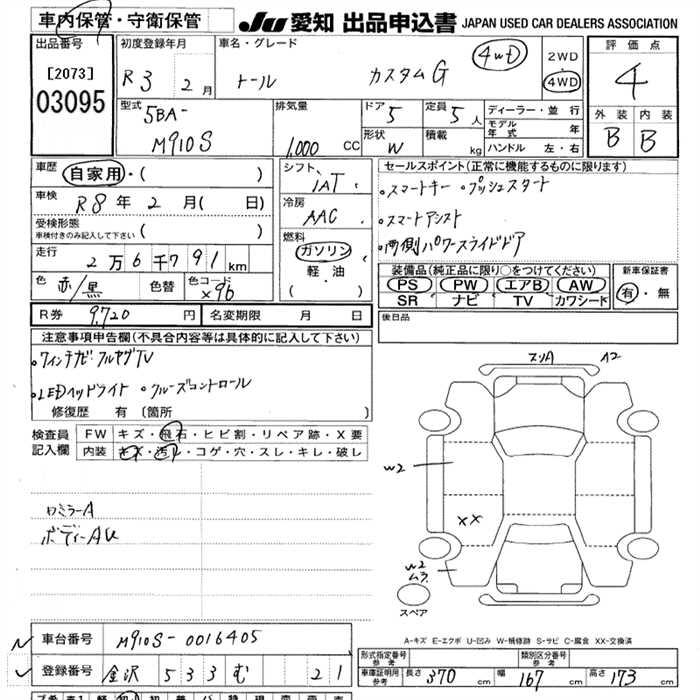 車内保管・守衛保管
JU 愛知 出品申込書 JAPAN USED CAR DEALERS ASSOCIATION
出品番号
[2073]
03095
初度登録年月
R3 2月
車名・グレード
トール カスタムG 4WD
2WD
4WD
評価点
4
外装 内装
B B
型式
5BA-
M910S
排気量
1,000 CC
ドア 5
形状 W
定員 5人
積載 kg
ディーラー・並行
モデル年式 年
ハンドル 左・右
車歴
自家用・( )
車検
R8年2月( 日)
受検形態
車検付きのみ記入して下さい ( )
走行
2万6千791km
色 赤/黒 色替 色コード X96
シフト
IAT
冷房
AAC
燃料
ガソリン
軽・油
( )
セールスポイント(正常に機能するものに限ります)
・スマートキー ・プッシュスタート
・スマートアシスト
・両側パワースライドドア
装備品(純正品に限り○をつけてください)
PS PW エアB AW
SR ナビ TV カワシード
新車保証書
有・無
R券 9,720円 名変期限 月 日
後日品
注意事項申告欄(不具合内容等は具体的に記入して下さい)
・9インチナビ・フルセグTV
・LEDヘッドライト ・クルーズコントロール
修復歴 有〔箇所 〕
検査員記入欄
FW キズ・飛石・ヒビ割・リペア跡・X要
内装 キズ・汚れ・コゲ・穴・スレ・キレ・破レ
ロミラーA
ボディーAU
スリA A2
W2
XX
W2
ムラ
スペア
A-キズ E-エクボ U-凹み W-補修跡 S-サビ C-腐食 XX-交換済
車台番号 M910S-0016405
登録番号 金沢 533 む 21
形式指定番号 参考
類別区分番号 参考
車庫証明用 参考 長さ 370 cm 幅 167 cm 高さ 173 cm